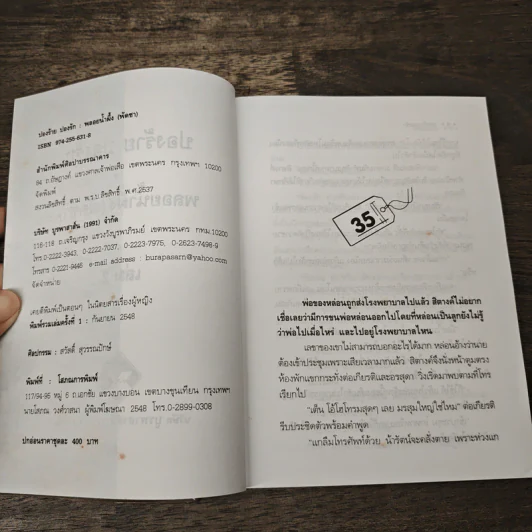 ปองร้าย ปองรัก : พลอยน้ำผึ้ง (พัดชา)
ISBN 974-255-631-8
สำนักพิมพ์ศิลปาบรรณาคาร
84 ถ.อัษฎางค์ แขวงศาลเจ้าพ่อเสือ เขตพระนคร กรุงเทพฯ 10200
จัดพิมพ์
สงวนลิขสิทธิ์ ตาม พ.ร.บ.ลิขสิทธิ์ พ.ศ.2537
บริษัท บูรพาสาส์น (1991) จำกัด
116-118 ถ.เจริญกรุง แขวงวังบูรพาภิรมย์ เขตพระนคร กทม.10200
โทร.0-2222-3943, 0-2222-7037, 0-2223-7975, 0-2623-7498-9
โทรสาร 0-2221-9446 e-mail address : burapasarn@yahoo.com
จัดจำหน่าย
เคยตีพิมพ์เป็นตอนๆ ในนิตยสารเรื่องผู้หญิง
พิมพ์รวมเล่มครั้งที่ 1 : กันยายน 2548
ศิลปกรรม : ตวัสดิ์ สุวรรณปักษ์
พิมพ์ที่ : โสภณการพิมพ์
117/94-95 หมู่ 6 ถ.เอกชัย แขวงบางบอน เขตบางขุนเทียน กรุงเทพฯ
นายโสภณ วงศ์วาสนา ผู้พิมพ์โฆษณา 2548 โทร.0-2899-0308
ปกอ่อนราคาชุดละ 400 บาท
35
พ่อของหล่อนถูกส่งโรงพยาบาลไปแล้ว สิตางศ์ไม่อยาก
เชื่อเลยว่ามีการขนพ่อหล่อนออกไปโดยที่หล่อนเป็นลูกยังไม่รู้
ว่าพ่อไปเมื่อไหร่ และไปอยู่โรงพยาบาลไหน
เลขาของเขาไม่สามารถบอกอะไรได้มาก หล่อนอ้างว่านาย
ต้องเข้าประชุมเพราะเสียเวลามากแล้ว สิตางศ์จึงนั่งหน้าตูมตรง
ห้องพักแขกกระทั่งต่อเกียรติและอรสุดา วิ่งเริ่ดมาพบตามที่โทร
เรียกไป
"เต้น โอ๋โฮโทรมสุดๆ เลย มรสุมใหญ่ใช่ไหม" ต่อเกียรติ
รีบประชิดตัวพร้อมคำพูด
"แกลืมโทรศัพท์ด้วย น้ารัตน์จะคลั่งตาย เพราะห่วงแก